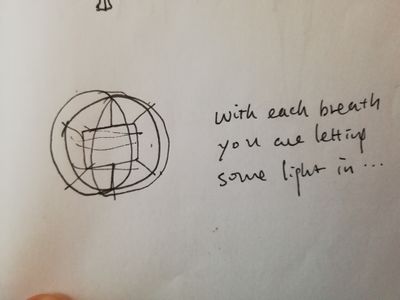 with each breath
you are letting
some light in...